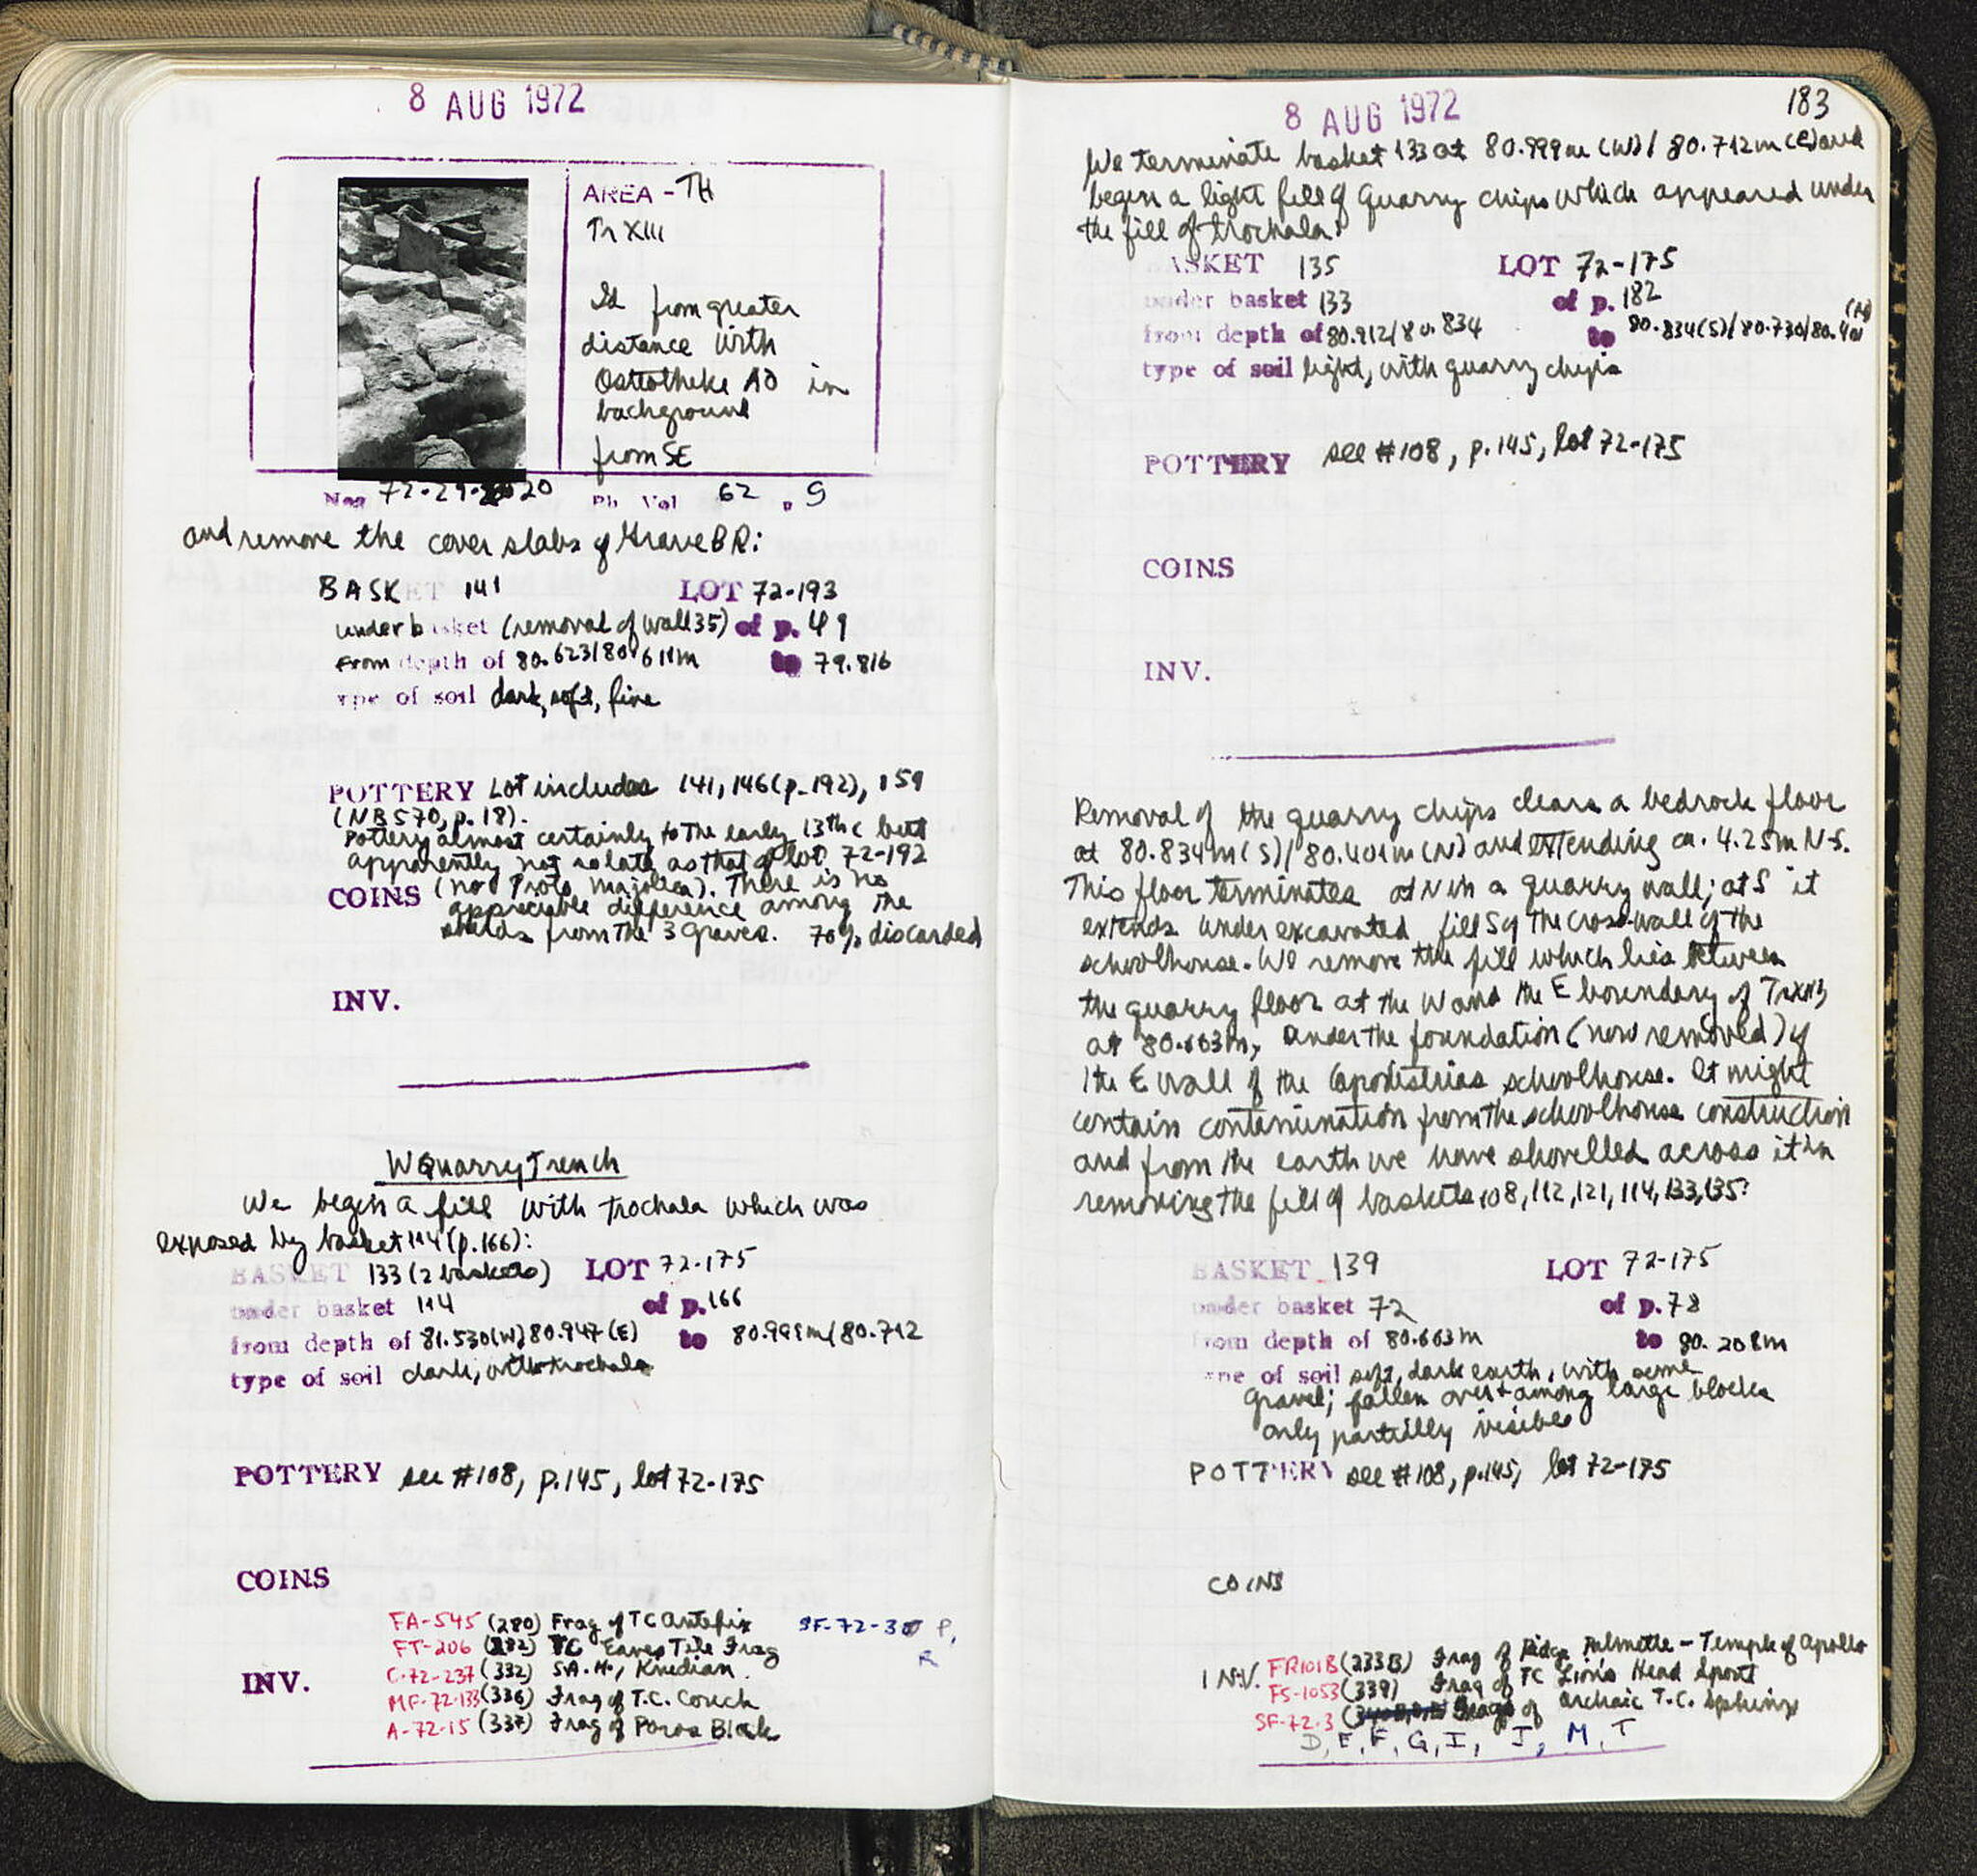 8 AUG 1972
AREA - TH
Tr XIII
Id from greater
distance with
Osteotheke AD in
background
from SE
Neg 72-29-20 Ph Vol 62 p 9
and remove the cover slabs of Grave BR:
BASKET 141 LOT 72-193
under basket (removal of wall 35) of p. 49
from depth of 80.623/80.611m to 79.816
type of soil dark, soft, fine
POTTERY Lot includes 141, 146 (p. 192), 159
(NB 570, p. 18).
Pottery almost certainly to the early 13th c but
apparently not so late as that of lot 72-192
(no Proto majolica). There is no
COINS appreciable difference among the
sherds from the 3 graves. 70% discarded
INV.
W Quarry Trench
We begin a fill with trochala which was
exposed by basket 114 (p. 166):
BASKET 133 (2 baskets) LOT 72-175
under basket 114 of p. 166
from depth of 81.530(W)/80.947(E) to 80.999m/80.712
type of soil dark, with trochala
POTTERY see #108, p. 145, lot 72-175
COINS
FA-545 (280) Frag of TC Antefix SF-72-3 P,
FT-206 (282) TC Eaves Tile Frag R
C-72-237 (332) S.A.H., Knidian.
INV. MF-72-133 (336) Frag of T.C. Couch
A-72-15 (337) Frag of Poros Block
8 AUG 1972 183
We terminate basket 133 at 80.999m (W)/ 80.712m (E) and
begin a light fill of quarry chips which appeared under
the fill of trochala:
BASKET 135 LOT 72-175
under basket 133 of p. 182
from depth of 80.912/80.834 to 80.834(S)/80.730/80.401 (N)
type of soil light, with quarry chips
POTTERY see #108, p. 145, lot 72-175
COINS
INV.
Removal of the quarry chips clears a bedrock floor
at 80.834m (S)/80.401m (N) and extending ca. 4.25m N-S.
This floor terminates at N in a quarry wall; at S it
extends under excavated fill S of the cross-wall of the
schoolhouse. We remove the fill which lies between
the quarry floor at the W and the E boundary of Tr XIII,
at 80.663m, under the foundation (now removed) of
the E wall of the Capodistrias schoolhouse. It might
contain contamination from the schoolhouse construction
and from the earth we have shovelled across it in
removing the fill of baskets 108, 112, 121, 114, 133, 135:
BASKET 139 LOT 72-175
under basket 72 of p. 78
from depth of 80.663m to 80.208m
type of soil soft, dark earth, with some
gravel; fallen over + among large blocks
only partially visible
POTTERY see #108, p. 145, lot 72-175
COINS
INV. FR101B (233B) Frag of Ridge Palmette - Temple of Apollo
FS-1053 (339) Frag of TC Lion's Head Spout
SF-72-3 Frags of Archaic T.C. Sphinx
D, E, F, G, I, J, M, T